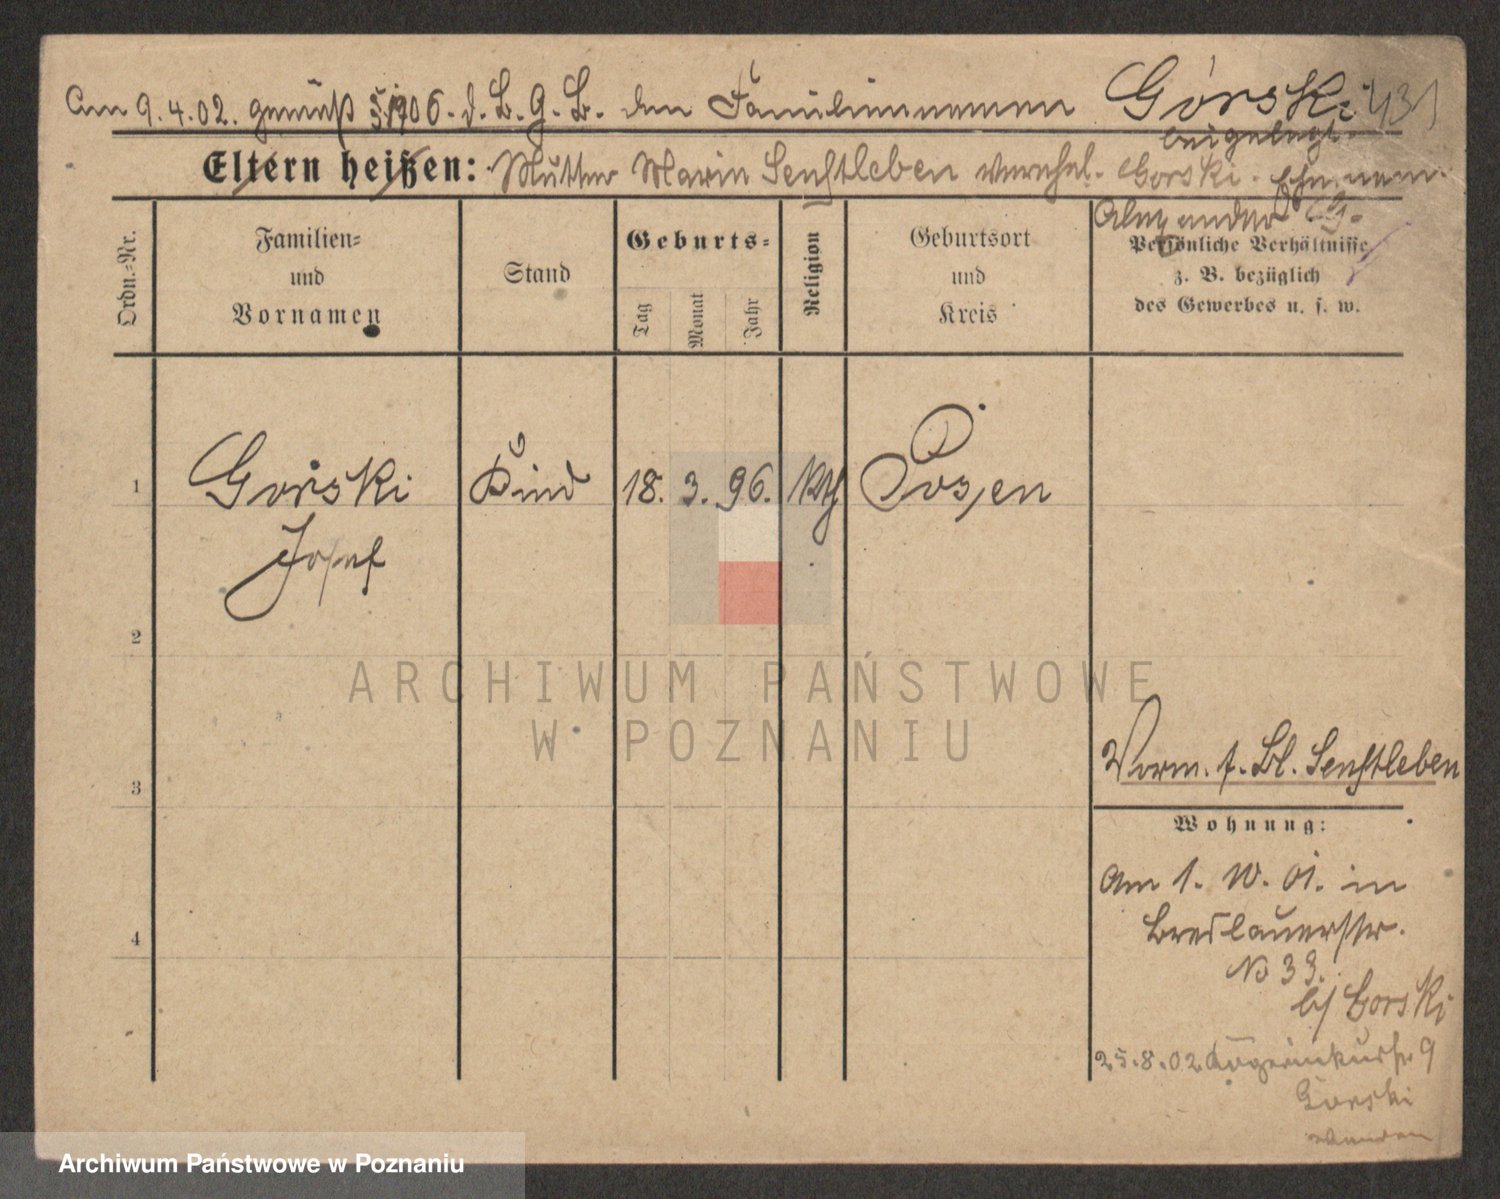 Am 9.4.02. gemäß §. 1706. d. B. G. B. den Familiennamen Górski 431
beigelegt.
Eltern heißen: Mutter Marie Senftleben verehel. Gorski. Ehenam.
Alexander G.
Ordn.-Nr.
Familien-
und
Vornamen
Stand
Geburts-
Tag
Monat
Jahr
Religion
Geburtsort
und
Kreis
Persönliche Verhältnisse
z. B. bezüglich
des Gewerbes u. s. w.
1
Gorski
Kind
18. 3. 96.
kth
Posen
Josef
2
ARCHIWUM PAŃSTWOWE
W POZNANIU
Vorm. f. Bl. Senftleben
3
Wohnung:
Am 1. 10. 01. in
Breslauerstr.
No 33.
b/ Gorski
4
25.8.02 9
Gorski
Archiwum Państwowe w Poznaniu